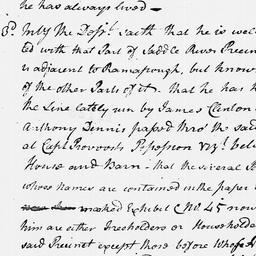 he has always lived —
3d. This Dept. saith that he is well
ed with that Part of Saddle River Precinct
is adjacent to Ramapough, but knows
of the other Parts of it. that he has h
the Line lately run by James Clinton
Anthony Dennis passed thro' the said
at Capt. Provosts Possession vizt. bet
House and Barn — that the several
whose Names are contained in the paper
marked Exhibit C No. 45 now
him are either Freeholders or Householders
said Precinct except those before whose